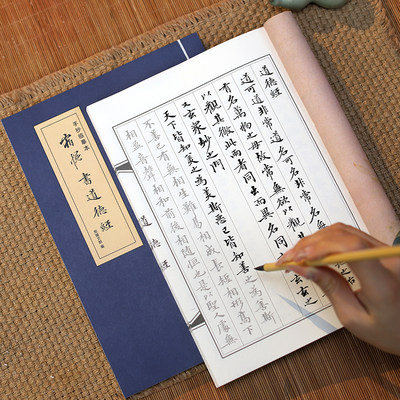 手抄临摹本
書道德經
道德經
道可道非常道名可名非常名
有名萬物之母故常無欲以觀
以觀其徼此兩者同出而異名同 玄玄之
又玄眾妙之門
天下皆知美之為美斯惡已皆知善之為善斯
不善已有無相生難易相成長短相形高下
相盈音聲相和前後相隨恒也是以聖人處無
道德經